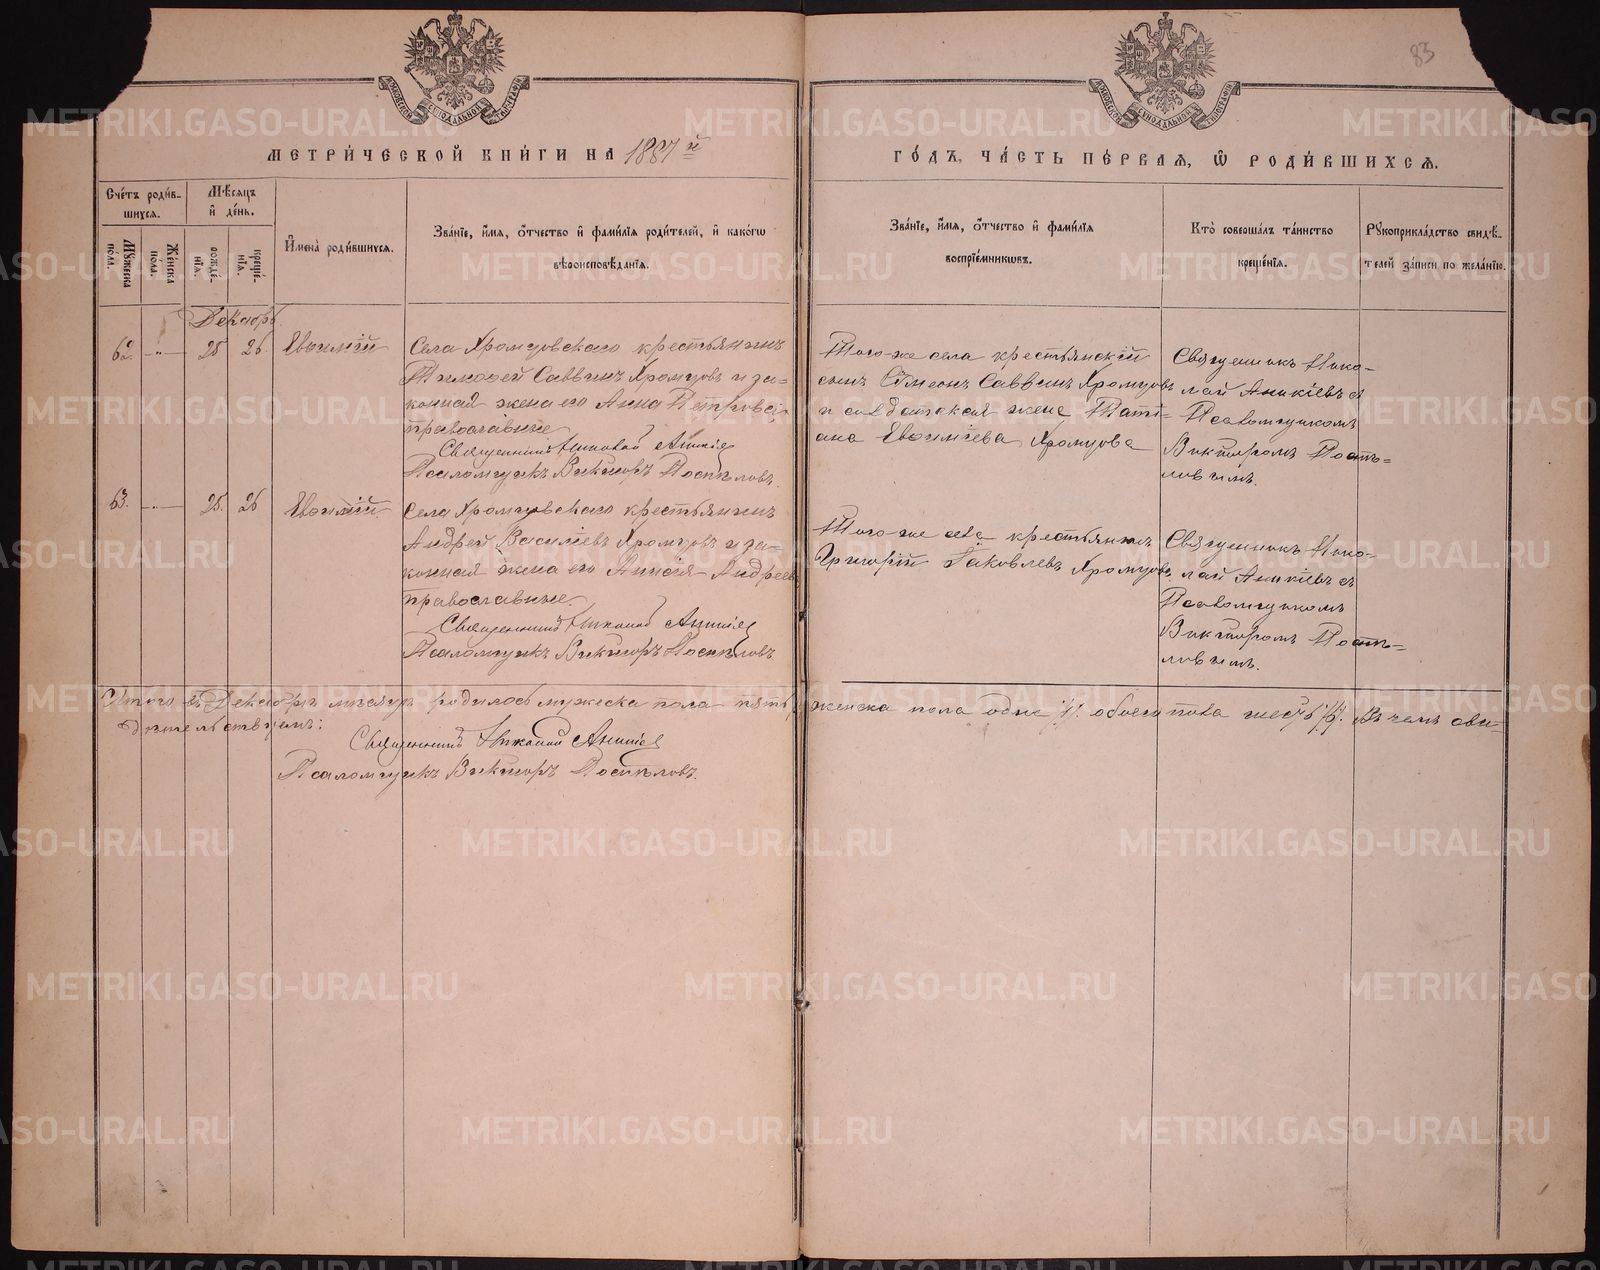 83
МЕТРИ́ЧЕСКОЙ КНИ́ГИ НА 1887 й
ГО́ДЪ, ЧА́СТЬ ПЕ́РВАЯ, Ѽ РОДИ́ВШИХСЯ.
Сче́тъ роди́в-
шихся.
Мѣ́сяцъ
и҆ де́нь.
Мꙋ́жеска
по́ла.
Же́нска
по́ла.
рожде́-
нїѧ.
креще́-
нїѧ.
И҆мена̀ роди́вшихся.
Зва́нїе, и҆́мя, ѻ҆́тчество и҆ фами́лїя роди́телей, и҆ како́гѡ
вѣроисповѣ́данїя.
Зва́нїе, и҆́мя, ѻ҆́тчество и҆ фами́лїя
воспрїе́мникѡвъ.
Кто̀ соверша́лъ та́инство
креще́нїя.
Рꙋкоприкла́дство свидѣ́-
телей за́писи по жела́нїю.
Декабрь.
62. — „ — 25 26 Евѳимій
Села Хромцовскаго крестьянинъ
Тимофей Саввинъ Хромцовъ и за-
конная жена его Анна Петрова
православные
Священникъ Николай Аникіев
Псаломщикъ Викторъ Поспѣловъ.
Того-же села крестьянскій
сынъ Сѵмеонъ Саввинъ Хромцовъ
и солдатская жена Тати-
ана Евѳиміева Хромцова
Священникъ Нико-
лай Аникіевъ съ
Псаломщикомъ
Викторомъ Поспѣ-
ловымъ.
63. — „ — 25. 26 Евѳимій.
Села Хромцовскаго крестьянинъ
Андрей Василіевъ Хромцовъ и за-
конная жена его Анисія Андреева
православные.
Священникъ Николай Аникіев
Псаломщикъ Викторъ Поспѣловъ.
Того-же села крестьянинъ
Григорій Іаковлевъ Хромцовъ.
Священникъ Нико-
лай Аникіевъ съ
Псаломщикомъ
Викторомъ Поспѣ-
ловымъ.
Итого въ Декабрѣ мѣсяцѣ родилось мужеска пола пять, женска пола одна /1/. обоего пола шесть /6/. Въ чемъ сви-
дѣтельствуемъ:
Священникъ Николай Аникіев
Псаломщикъ Викторъ Поспѣловъ.
METRIKI.GASO-URAL.RU